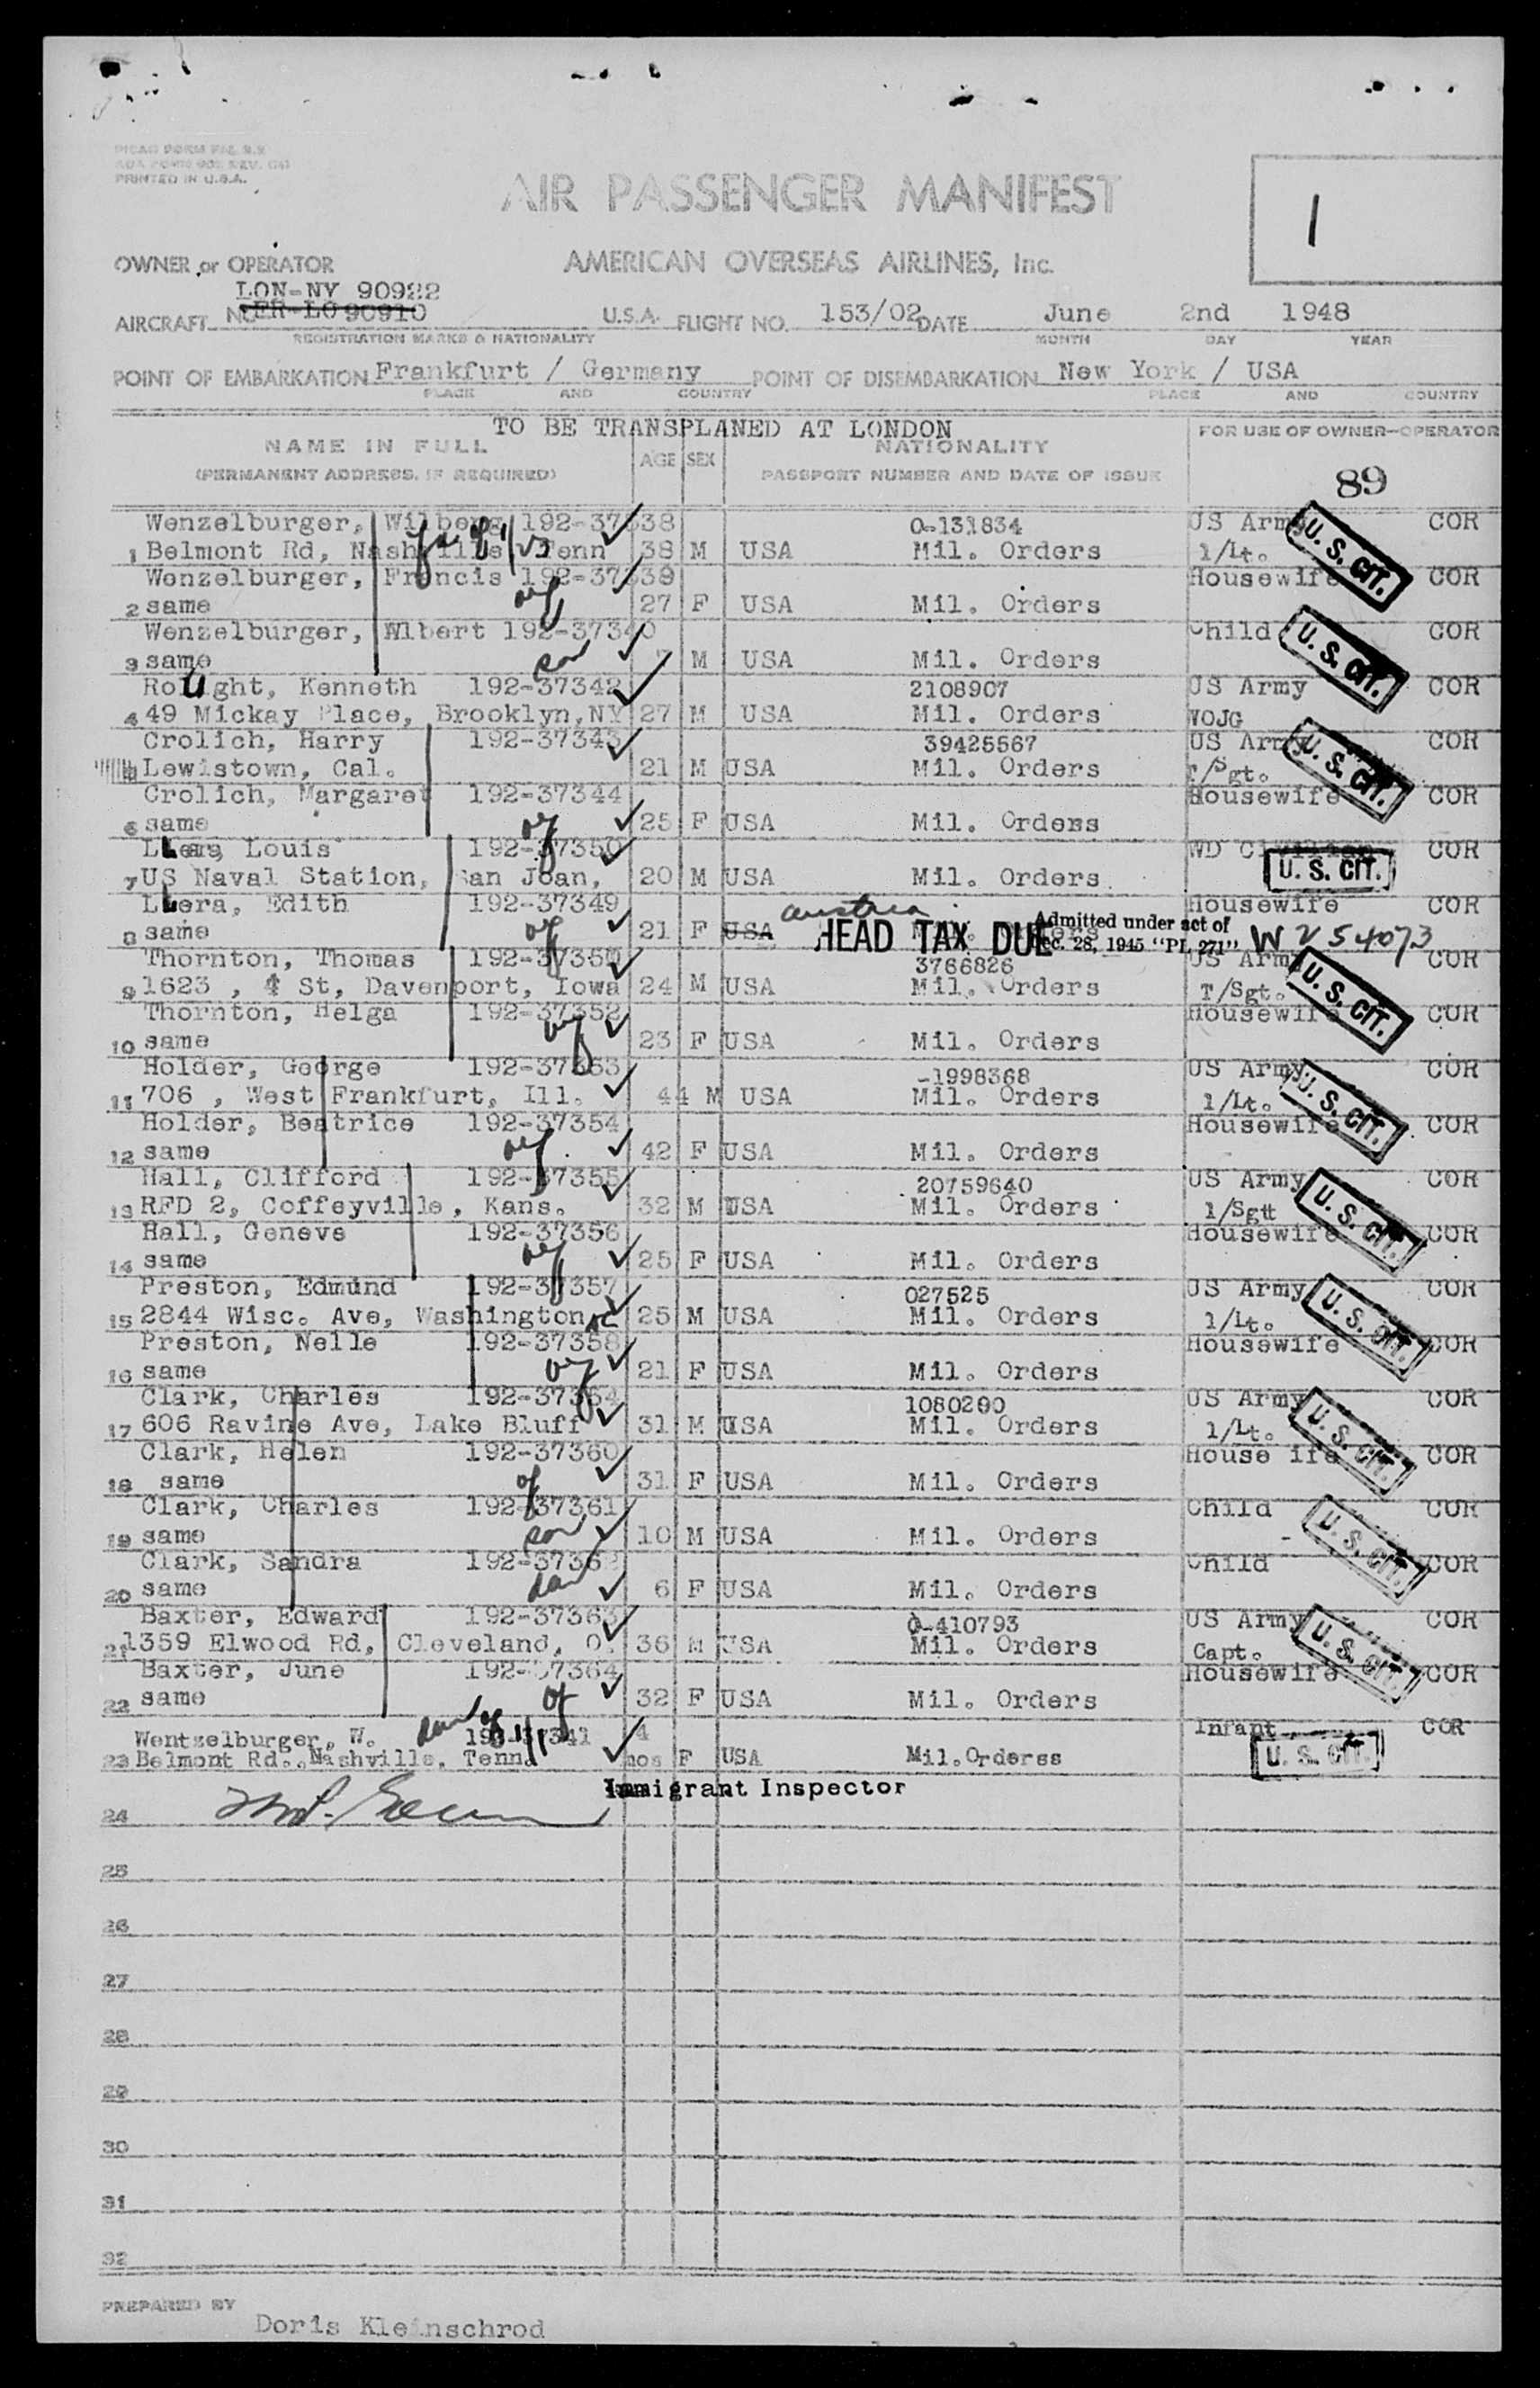 PRINTED IN U.S.A.
AIR PASSENGER MANIFEST
1
OWNER or OPERATOR
AMERICAN OVERSEAS AIRLINES, Inc.
LON-NY 90922
AIRCRAFT NO FR-LO 90910 U.S.A. FLIGHT NO. 153/02 DATE June 2nd 1948
REGISTRATION MARKS & NATIONALITY MONTH DAY YEAR
POINT OF EMBARKATION Frankfurt / Germany POINT OF DISEMBARKATION New York / USA
PLACE AND COUNTRY PLACE AND COUNTRY
TO BE TRANSPLANED AT LONDON
NAME IN FULL AGE SEX NATIONALITY FOR USE OF OWNER-OPERATOR
(PERMANENT ADDRESS, IF REQUIRED) PASSPORT NUMBER AND DATE OF ISSUE
89
Wenzelburger, 192-37338 O-131834 US Army COR
1 Belmont Rd, Nashville, Tenn 38 M USA Mil. Orders 1/Lt. U.S. CIT.
Wenzelburger, Francis 192-37339 Housewife COR
2 same 27 F USA Mil. Orders
Wenzelburger, Wlbert 192-37340 Child COR
3 same son 7 M USA Mil. Orders U.S. CIT.
Kenneth 192-37342 2108907 US Army COR
4 49 Mickay Place, Brooklyn,NY 27 M USA Mil. Orders WOJG
Crolich, Harry 192-37343 39425567 US Army COR
Lewistown, Cal. 21 M USA Mil. Orders T/Sgt. U.S. CIT.
Crolich, Margaret 192-37344 Housewife COR
6 same 25 F USA Mil. Orders
Louis 192-37350 WD Civilian COR
7 US Naval Station, San Joan, 20 M USA Mil. Orders U.S. CIT.
Llera, Edith 192-37349 Housewife COR
8 same 21 F USA austria HEAD TAX DUE Admitted under act of
Dec. 28, 1945 "PL 271" W 254073
Thornton, Thomas 3766826 US Army COR
9 1623 , 4 St, Davenport, Iowa 24 M USA Mil. Orders T/Sgt. U.S. CIT.
Thornton, Helga 192-37352 Housewife COR
10 same 23 F USA Mil. Orders
Holder, George 192-37353 -1998368 US Army COR
11 706 , West Frankfurt, Ill. 44 M USA Mil. Orders 1/Lt. U.S. CIT.
Holder, Beatrice 192-37354 Housewife COR
12 same 42 F USA Mil. Orders
Hall, Clifford 192-37355 20759640 US Army COR
13 RFD 2, Coffeyville, Kans. 32 M USA Mil. Orders 1/Sgtt U.S. CIT.
Hall, Geneve 192-37356 Housewife COR
14 same 25 F USA Mil. Orders
Preston, Edmund 192-37357 027525 US Army COR
15 2844 Wisc. Ave, Washington DC 25 M USA Mil. Orders 1/Lt. U.S. CIT.
Preston, Nelle 192-37358 Housewife COR
16 same 21 F USA Mil. Orders
Clark, Charles 1080290 US Army COR
17 606 Ravine Ave, Lake Bluff 31 M USA Mil. Orders 1/Lt. U.S. CIT.
Clark, Helen 192-37360 House ife COR
18 same 31 F USA Mil. Orders
Clark, Charles 192-37361 Child COR
19 same son 10 M USA Mil. Orders U.S. CIT.
Clark, Sandra 192-37362 Child COR
20 same dau 6 F USA Mil. Orders
Baxter, Edward 192-37363 O-410793 US Army COR
21 1359 Elwood Rd, Cleveland, O. 36 M USA Mil. Orders Capt. U.S. CIT.
Baxter, June 192-37364 Housewife COR
22 same 32 F USA Mil. Orders
Wentzelburger, W. dau of 4 Infant COR
23 Belmont Rd., Nashville, Tenn. mos F USA Mil.Orderss U.S. CIT.
Immigrant Inspector
24
25
26
27
28
29
30
31
32
PREPARED BY
Doris Kleinschrod